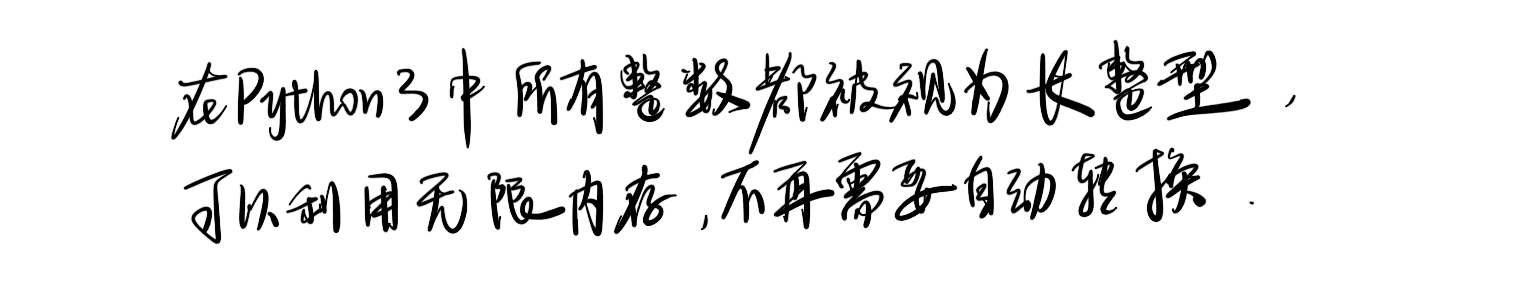 在Python3中所有整数都被视为长整型，
可以利用无限内存，不再需要自动转换.